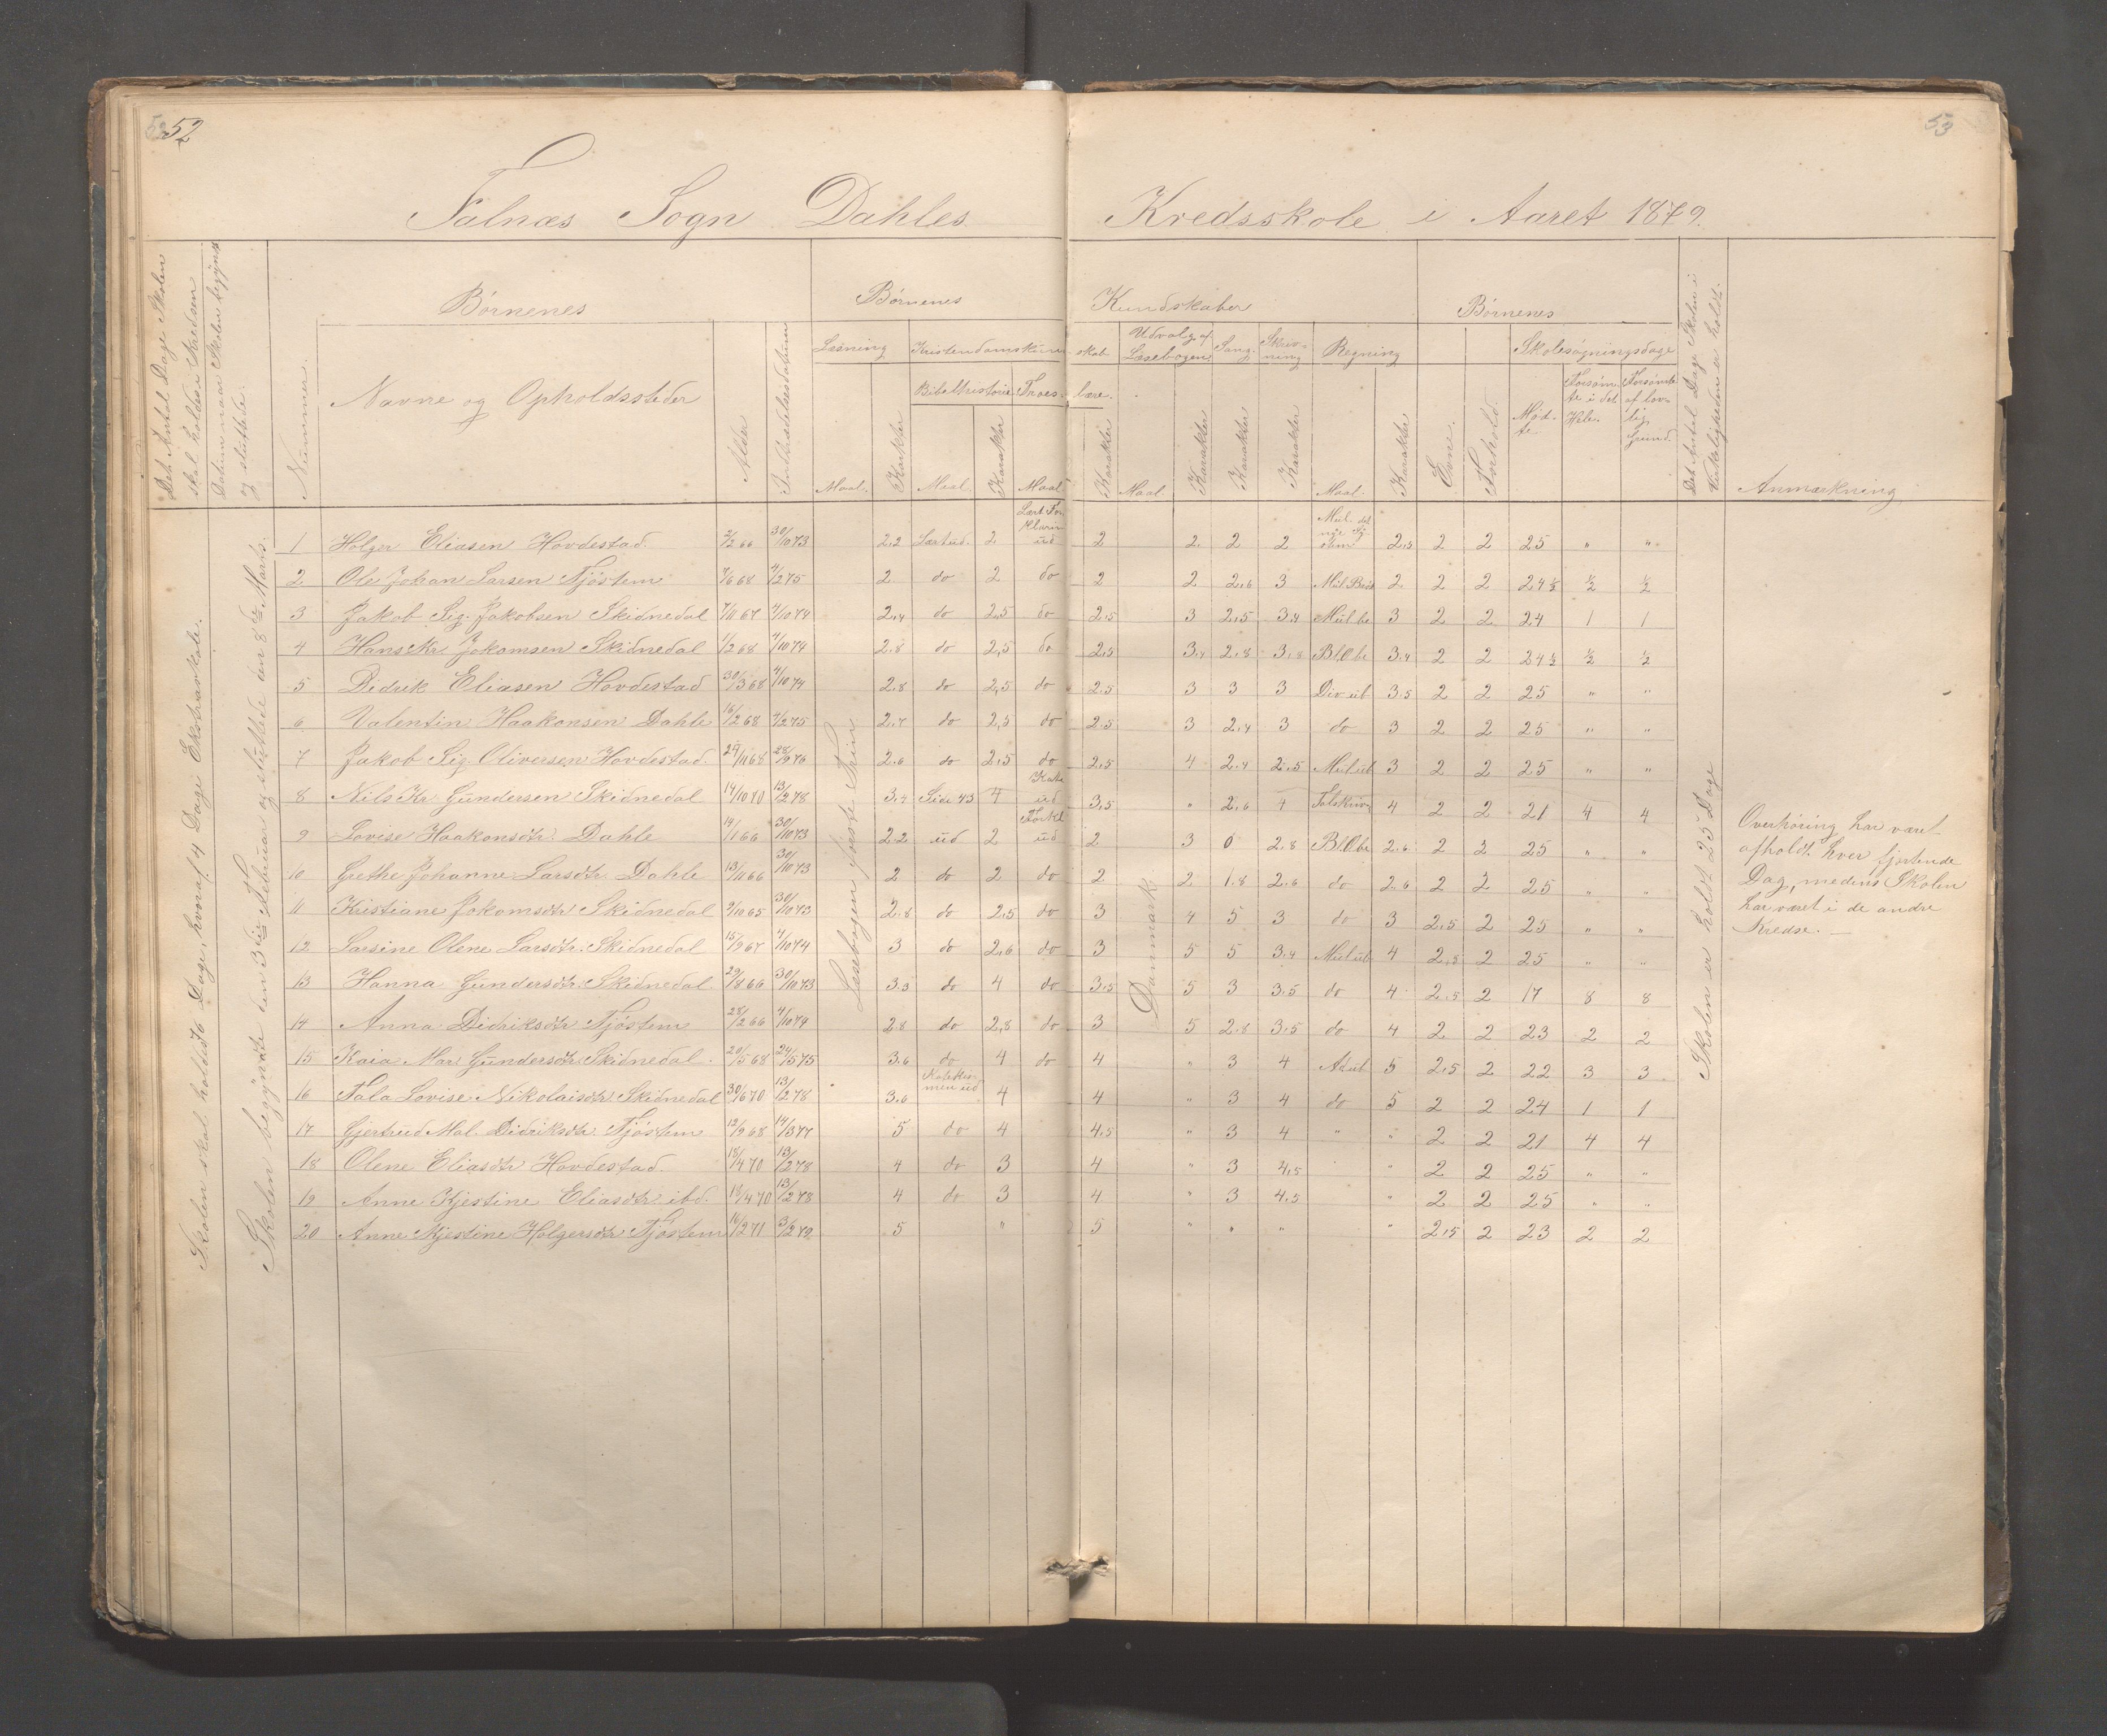 52 52
53
Falnæs Sogn Dahles Kredsskole i Aaret 1879.
Det Antal Dage Skolen skal holdes i Kredsen
Datum naar Skolen begyndt og sluttede.
Nummer.
Børnenes
Navne og Opholdssteder
Alder
Indtrædelsesdatum
Børnenes Kundskaber
Læsning
Maal.
Karakter
Kristendomskundskab
Bibelhistorie
Maal.
Karakter
Troeslære.
Maal
Karakter
Udvalg af Læsebogen
Maal.
Karakter
Sang.
Karakter
Skrivning
Karakter
Regning
Maal.
Karakter
Børnenes
Evne.
Forhold
Skolesøgningsdage
Mødte
Forsømte i det Hele.
Forsømte af lovlig Grund.
Det Antal Dage Skolen i Virkeligheden er holdt.
Anmærkning
Skolen skal holdes 76 Dage, hvoraf 4 Dage Ekstraskole.
Skolen begyndte den 3die Februar og sluttede den 8de Marts.
Læsebogen første Trin
Danmark.
Skolen er holdt 25 Dage
1 Holger Eliasen Hovdestad. 2/2 66 30/10 73 2,2 Lært ud. 2 Lært Forklaring ud 2 2 2 2 2,5 2 2 25 " "
2 Ole Johan Larsen Tjøstem 7/6 68 4/2 75 2 do 2 do 2 2 2,6 3 2 2 2 24½ ½ ½
3 Jakob Sig. Jakobsen Skidnedal 7/11 67 4/10 74 2,4 do 2,5 do 2,5 3 2,5 3,4 Mul be 3 2 2 24 1 1
4 Hans Kr. Jokomsen Skidnedal 1/2 68 4/10 74 2,8 do 2,5 do 2,5 3,4 2,8 3,8 3,4 2 2 24½ ½ ½
5 Didrik Eliasen Hovdestad 30/3 68 4/10 74 2,8 do 2,5 do 2,5 3 3 3 Div. ub 3,5 2 2 25 " "
6 Valentin Haakonsen Dahle 16/2 68 4/2 75 2,7 do 2,5 do 2,5 3 2,4 3 do 3 2 2 25 " "
7 Jakob Sig. Oliversen Hovdestad. 29/11 68 28/9 76 2,6 do 2,5 do 2,5 4 2,4 2,5 Mul ub 3 2 2 25 " "
8 Nils Kr. Gundersen Skidnedal 14/10 70 13/2 78 3,7 Side 43 4 Kate ud 3,5 " 2,6 4 Talskriv 4 2 2 21 4 4
9 Lovise Haakonsdtr. Dahle 14/1 66 30/10 73 2,2 ud 2 Forkl ud 2 3 0 2,8 2,6 2 2 25 " "
10 Grethe Johanne Larsdtr. Dahle 13/11 66 30/10 73 2 do 2 do 2 2 1,8 2,6 do 2,6 2 2 25 " "
11 Kristiane Jokomsdtr Skidnedal 9/10 65 30/10 73 2,8 do 2,5 do 3 4 5 3 do 3 2,5 2 25 " "
12 Larsine Olene Larsdtr. Skidnedal 15/9 67 4/10 74 3 do 2,6 do 3 5 5 3,4 Mul ub 4 2,5 2 25 " "
13 Hanna Gundersdtr. Skidnedal 29/8 66 30/10 73 3,5 do 4 do 3,5 5 3 3,5 do 4 2,5 2 17 8 8
14 Anna Didriksdtr Tjøstem 28/2 66 4/10 74 2,8 do 2,8 do 3 5 2,8 3,5 do 4 2 2 23 2 2
15 Kaia Mar. Gundersdtr. Skidnedal. 20/5 68 24/5 75 3,6 do 4 do 4 " 3 4 Ad ub 5 2,5 2 22 3 3
16 Tala Lovise Nikolaisdtr Skidnedal 30/6 70 13/2 78 3,6 Katekismen ud 4 4 " 3 4 do 5 2 2 24 1 1
17 Gjertrud Mal. Didriksdtr. Tjøstem 12/9 68 14/3 77 5 do 4 4,5 " 3 4 " " 2 2 21 4 4
18 Olene Eliasdtr Hovdestad. 18/4 70 13/2 78 4 do 3 4 " 3 4,5 " 2 2 25 " "
19 Anne Kjestine Eliasdtr ibd. 18/4 70 13/2 78 4 do 3 4 " 3 4,5 " 2 2 25 " "
20 Anne Kjestine Holgersdtr Tjøstem 16/2 71 3/2 79 5 " 5 " " " " 2,5 2 23 2 2
Overhøring har været
afholdt hver fjortende
Dag, medens Skolen
har været i de andre
Kredse. —